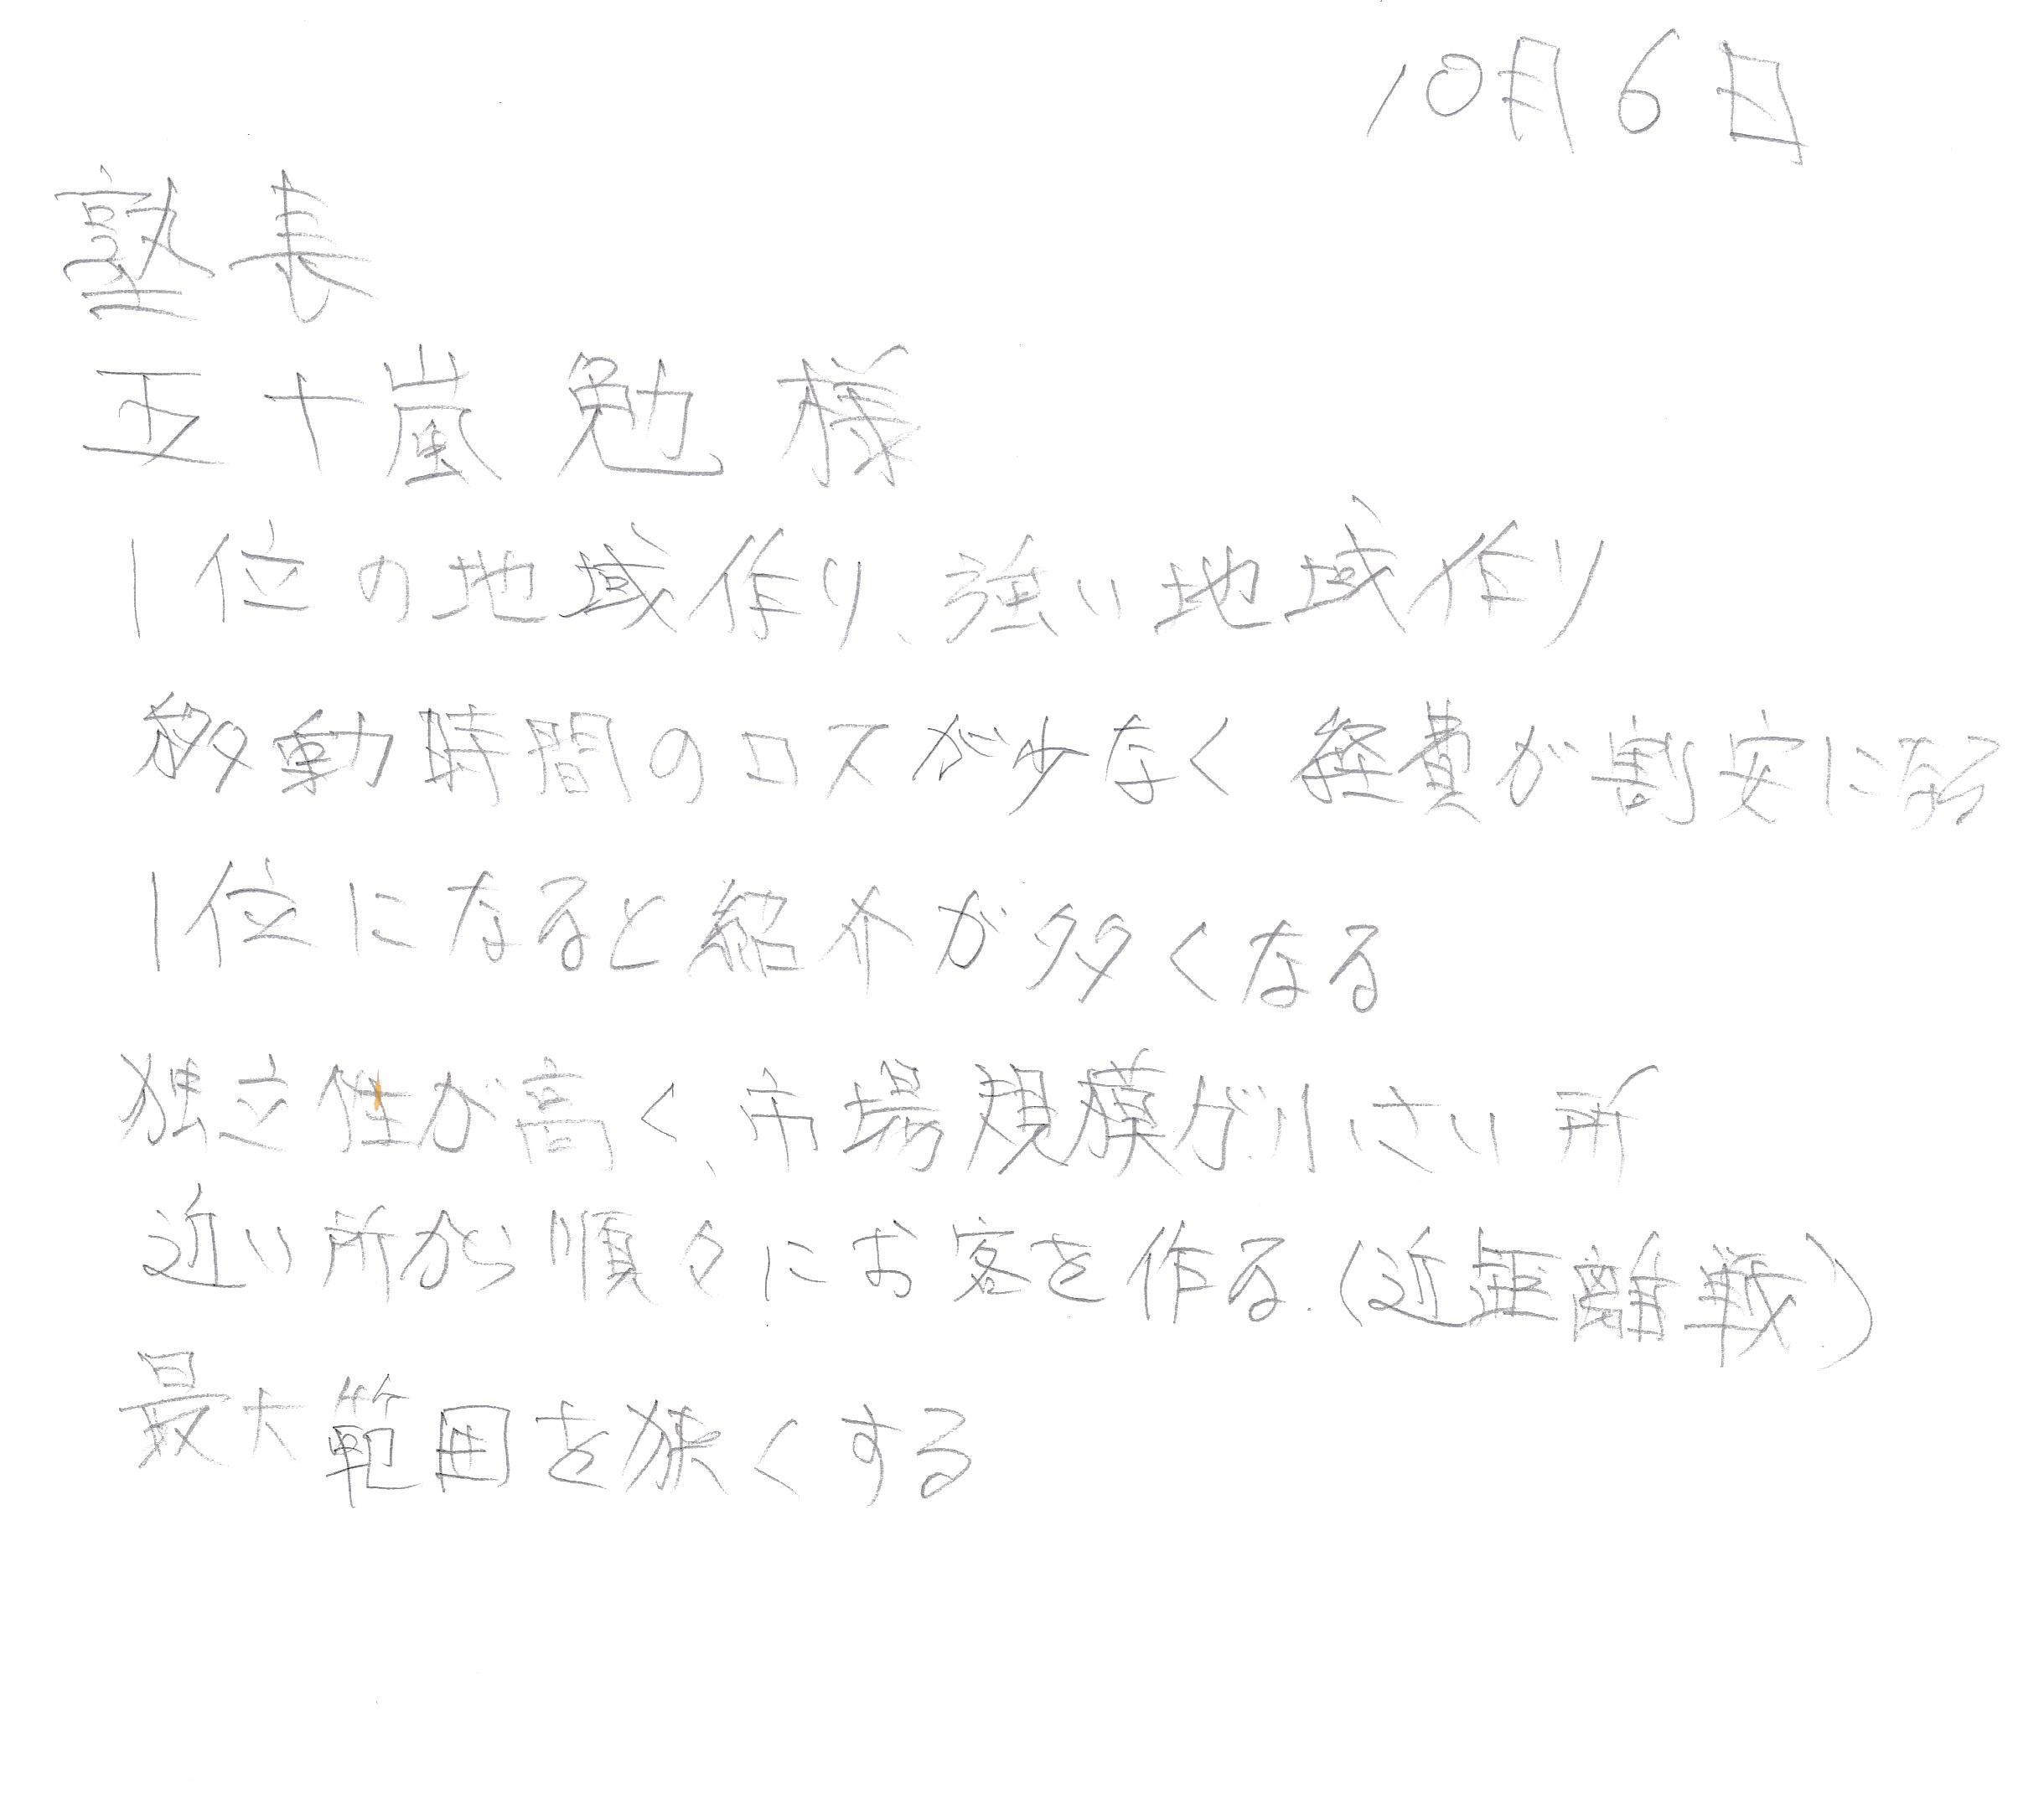 10月6日
塾長
五十嵐勉様
1位の地域作り、強い地域作り
移動時間のロスが少なく経費が割安になる
1位になると紹介が多くなる
独立性が高く、市場規模が小さい所
近い所から順々にお客を作る.(近距離戦)
最大範囲を狭くする